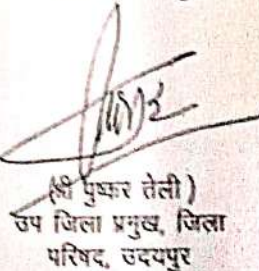 (श्री पुष्कर तेली)
उप जिला प्रमुख, जिला
परिषद, उदयपुर